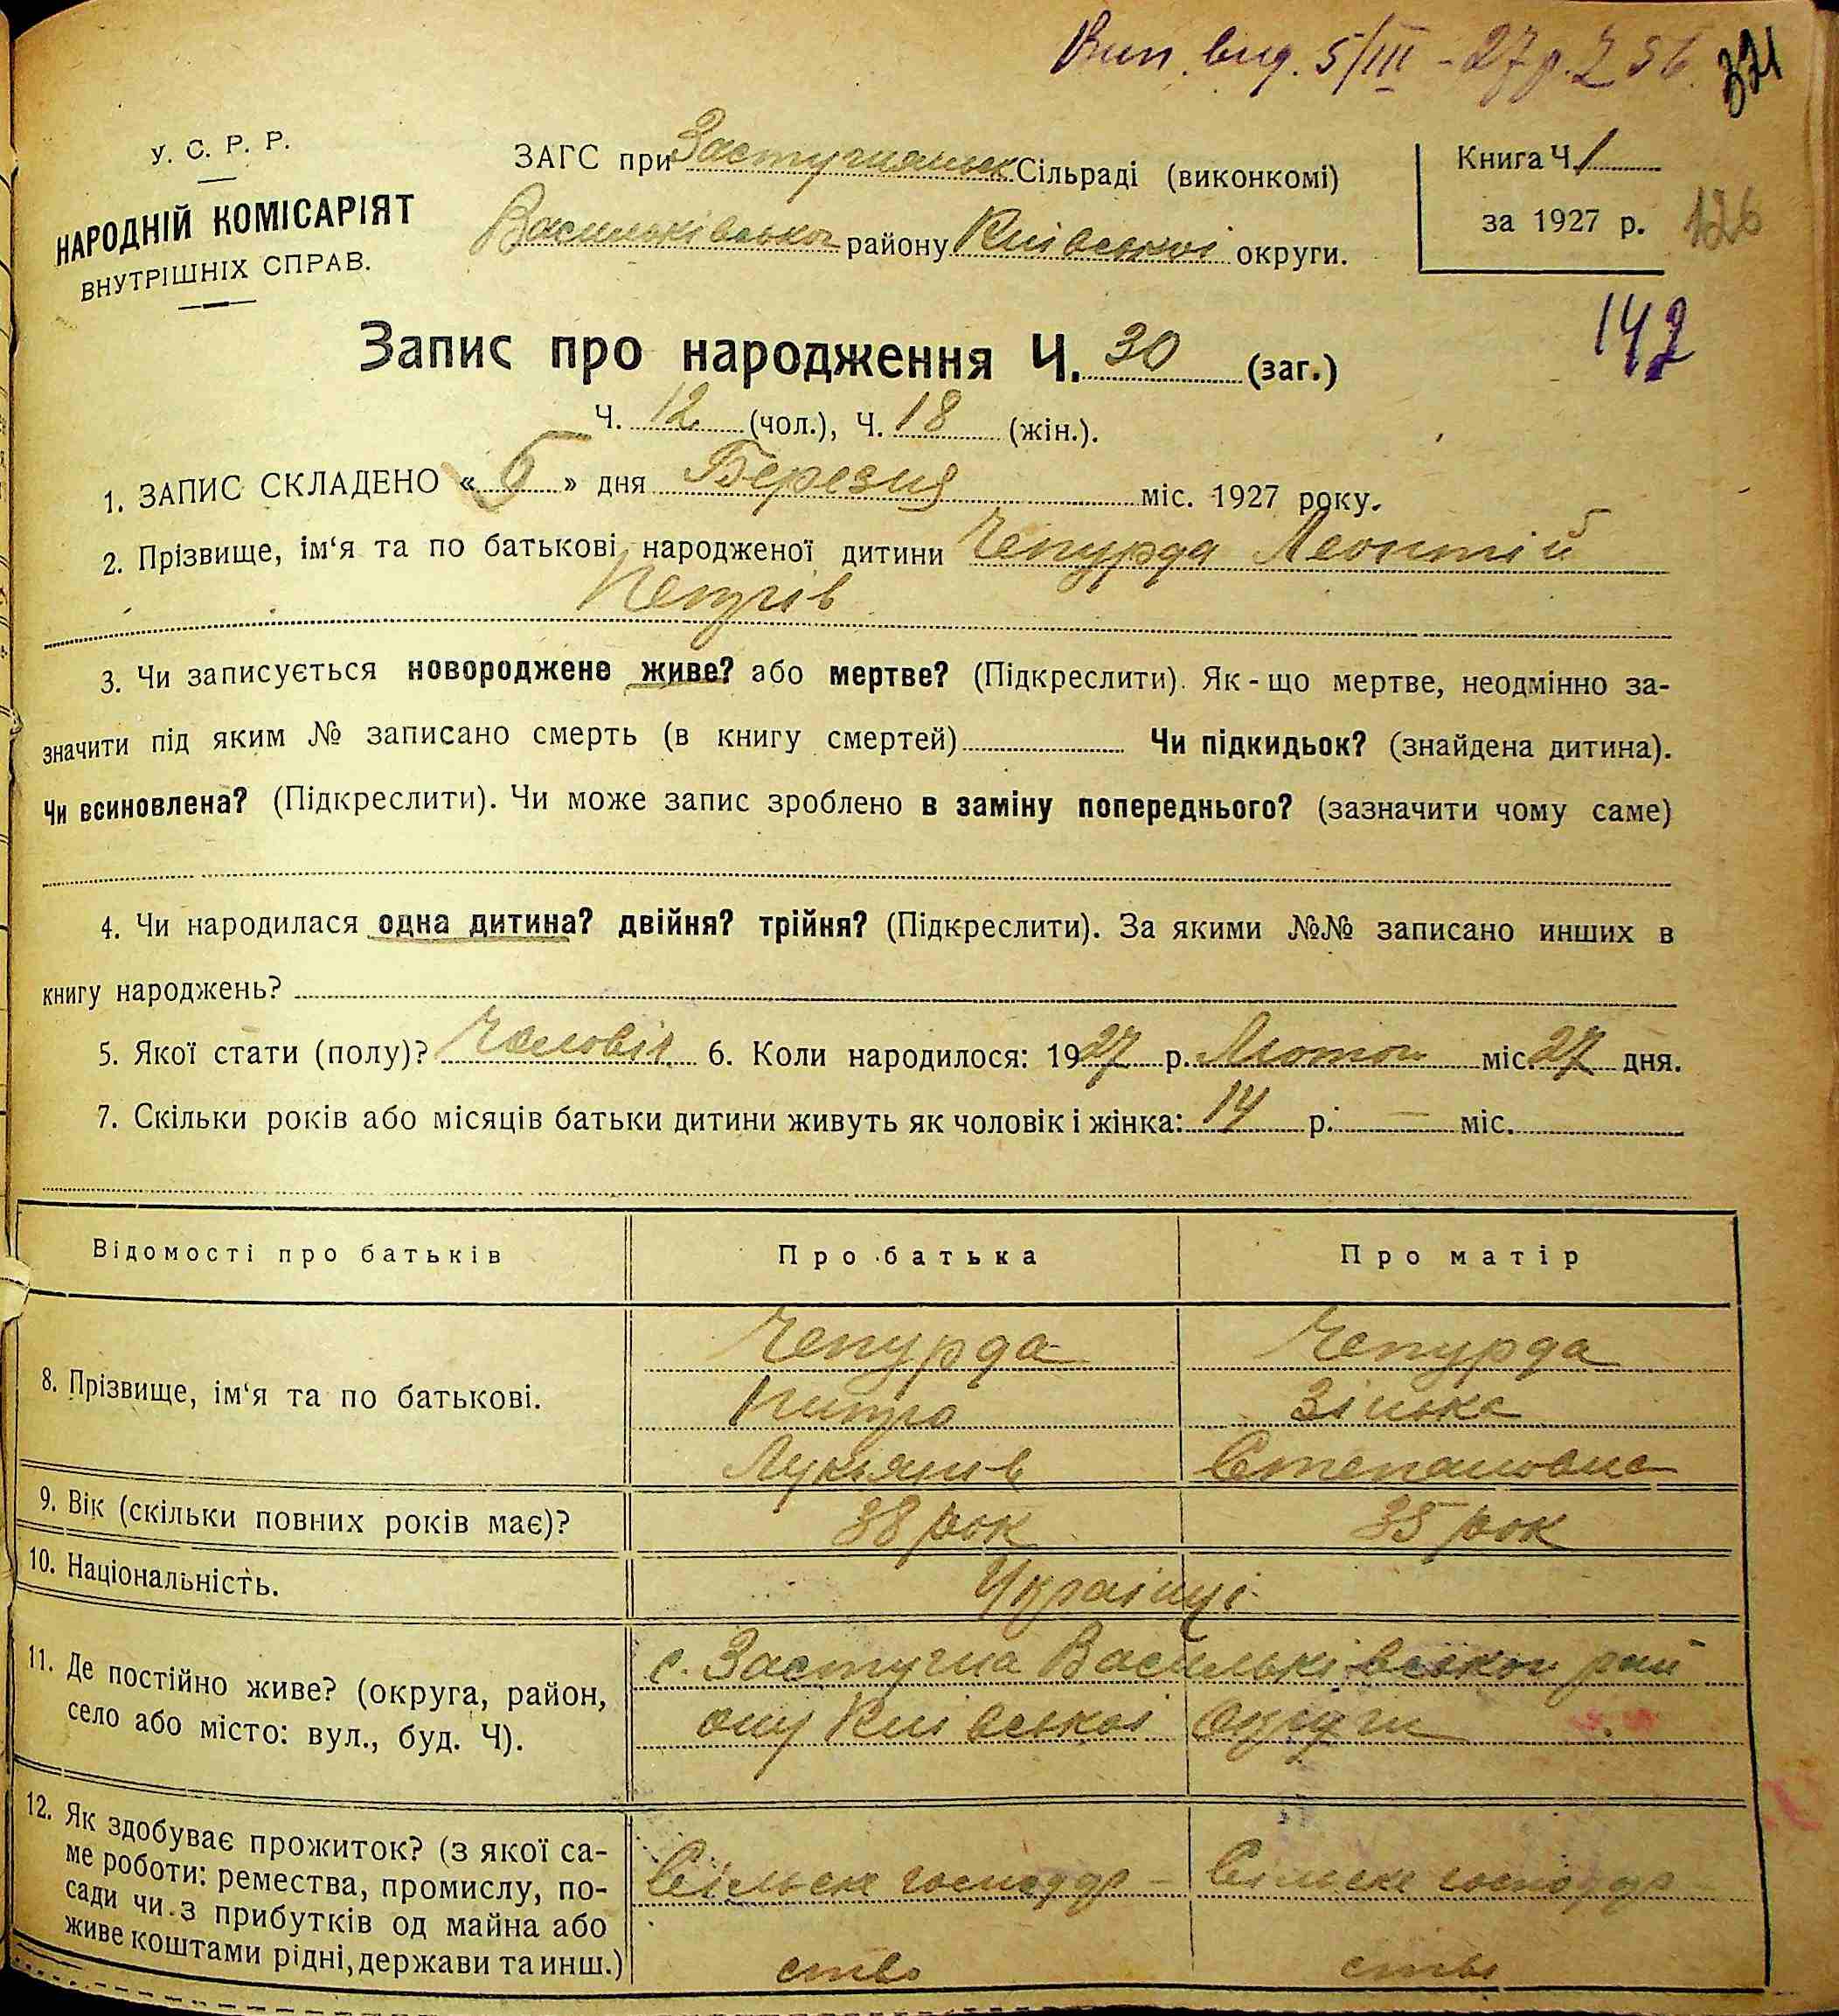 Вип. вид. 5/III - 27 р. 256
371
У. С. Р. Р.
НАРОДНІЙ КОМІСАРІЯТ
ВНУТРІШНІХ СПРАВ.
ЗАГС при Застугнянськ Сільраді (виконкомі)
Васильківського району Київської округи.
Книга Ч. 1
за 1927 р.
126
142
Запис про народження Ч. 30 (заг.)
Ч. 12 (чол.), Ч. 18 (жін.).
1. ЗАПИС СКЛАДЕНО « 5 » дня Березня міс. 1927 року.
2. Прізвище, ім‘я та по батькові народженої дитини Чепурда Леонтій
Петрів
3. Чи записується новороджене живе? або мертве? (Підкреслити). Як-що мертве, неодмінно за-
значити під яким № записано смерть (в книгу смертей) Чи підкидьок? (знайдена дитина).
Чи всиновлена? (Підкреслити). Чи може запис зроблено в заміну попереднього? (зазначити чому саме)
4. Чи народилася одна дитина? двійня? трійня? (Підкреслити). За якими №№ записано инших в
книгу народжень?
5. Якої стати (полу)? Чоловік 6. Коли народилося: 1927 р. Лютого міс. 27 дня.
7. Скільки років або місяців батьки дитини живуть як чоловік і жінка: 14 р. — міс.
Відомості про батьків Про батька Про матір
8. Прізвище, ім‘я та по батькові.
Чепурда Чепурда
Питро Зінька
Лукянив Степановна
9. Вік (скільки повних років має)? 38 рок 35 рок
10. Національність. Українці
11. Де постійно живе? (округа, район,
село або місто: вул., буд. Ч).
с. Застугна Васильківського рай
ону Київської округи
12. Як здобуває прожиток? (з якої са-
ме роботи: ремества, промислу, по-
сади чи з прибутків од майна або
живе коштами рідні, держави та инш.)
Сільске господар- Сільске господар
ство ство